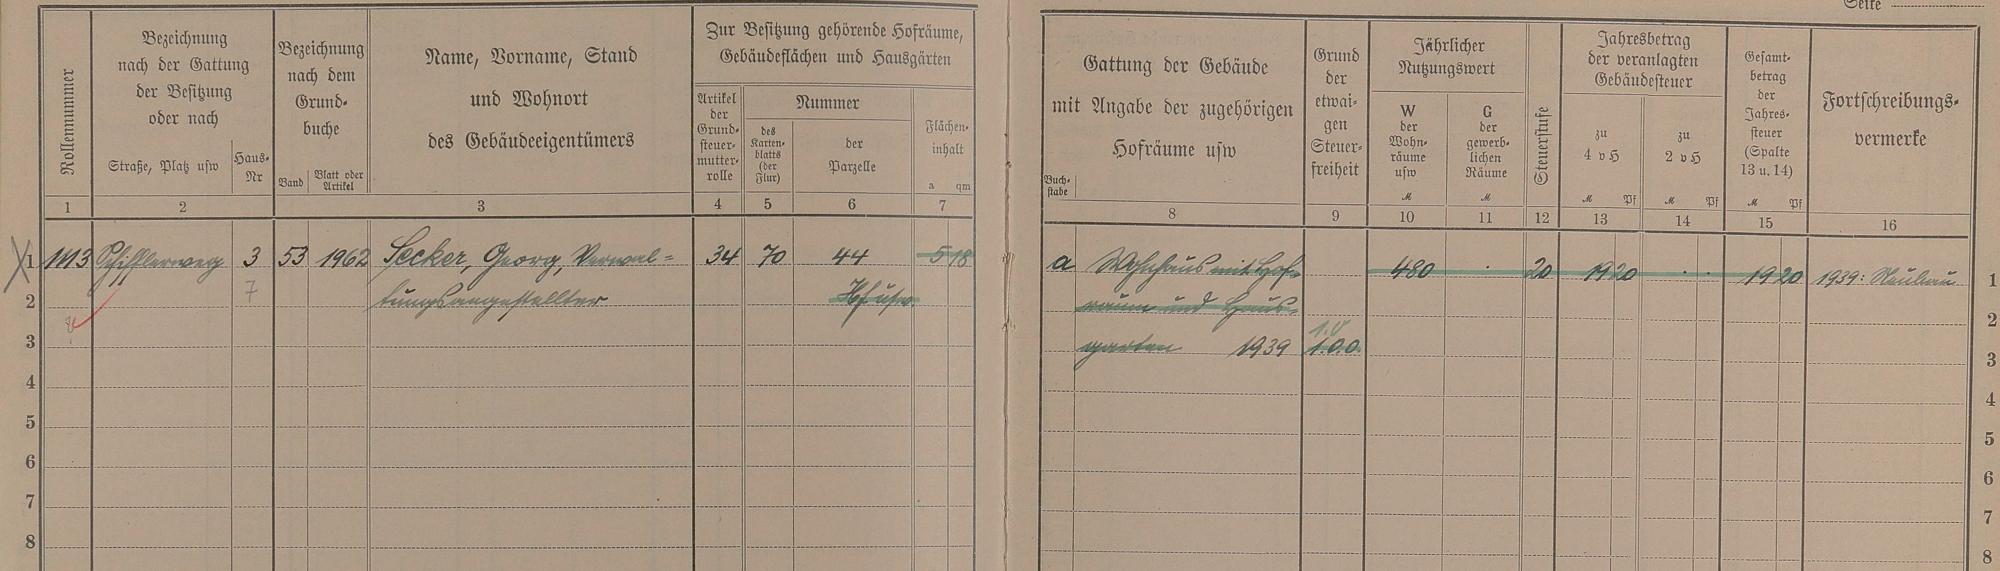 Seite
Rollennummer
Bezeichnung
nach der Gattung
der Besitzung
oder nach
Straße, Platz usw
Haus-
Nr
Bezeichnung
nach dem
Grund-
buche
Band
Blatt oder
Artikel
Name, Vorname, Stand
und Wohnort
des Gebäudeeigentümers
Zur Besitzung gehörende Hofräume,
Gebäudeflächen und Hausgärten
Artikel
der
Grund-
steuer-
mutter-
rolle
Nummer
des
Karten-
blatts
(der
Flur)
der
Parzelle
Flächen-
inhalt
a qm
1 2 3 4 5 6 7
1 1113 3 53 1962 Secker, Georg, Verwal= 34 70 44 5 18
2 7 tungsangestellter Hf usw.
3
4
5
6
7
8
Buch-
stabe
Gattung der Gebäude
mit Angabe der zugehörigen
Hofräume usw
Grund
der
etwai-
gen
Steuer-
freiheit
Jährlicher
Nutzungswert
W
der
Wohn-
räume
usw
M
G
der
gewerb-
lichen
Räume
M
Steuerstufe
Jahresbetrag
der veranlagten
Gebäudesteuer
zu
4 vH
M Pf
zu
2 vH
M Pf
Gesamt-
betrag
der
Jahres-
steuer
(Spalte
13 u. 14)
M Pf
Fortschreibungs-
vermerke
8 9 10 11 12 13 14 15 16
a Wohnhaus mit Hof= 480 · 20 19 20 · · 19 20 1939: Neubau 1
raum und Haus= 2
garten 1939 3
4
5
6
7
8